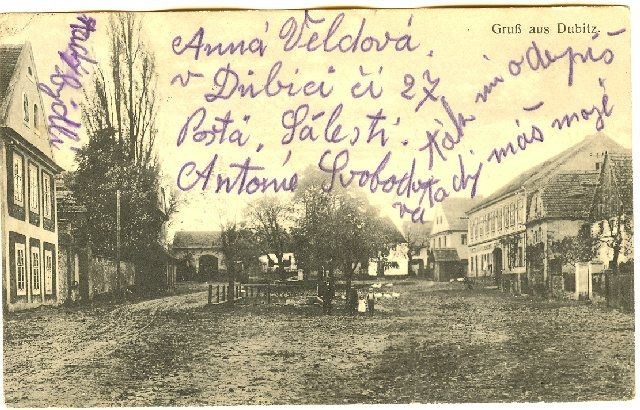 Gruß aus Dubitz.
Anná Veldová.
v Dubici čí 27
Postá, Sálestí.
Antonie Svoboda
ták mi odepiš
tady máš mojé